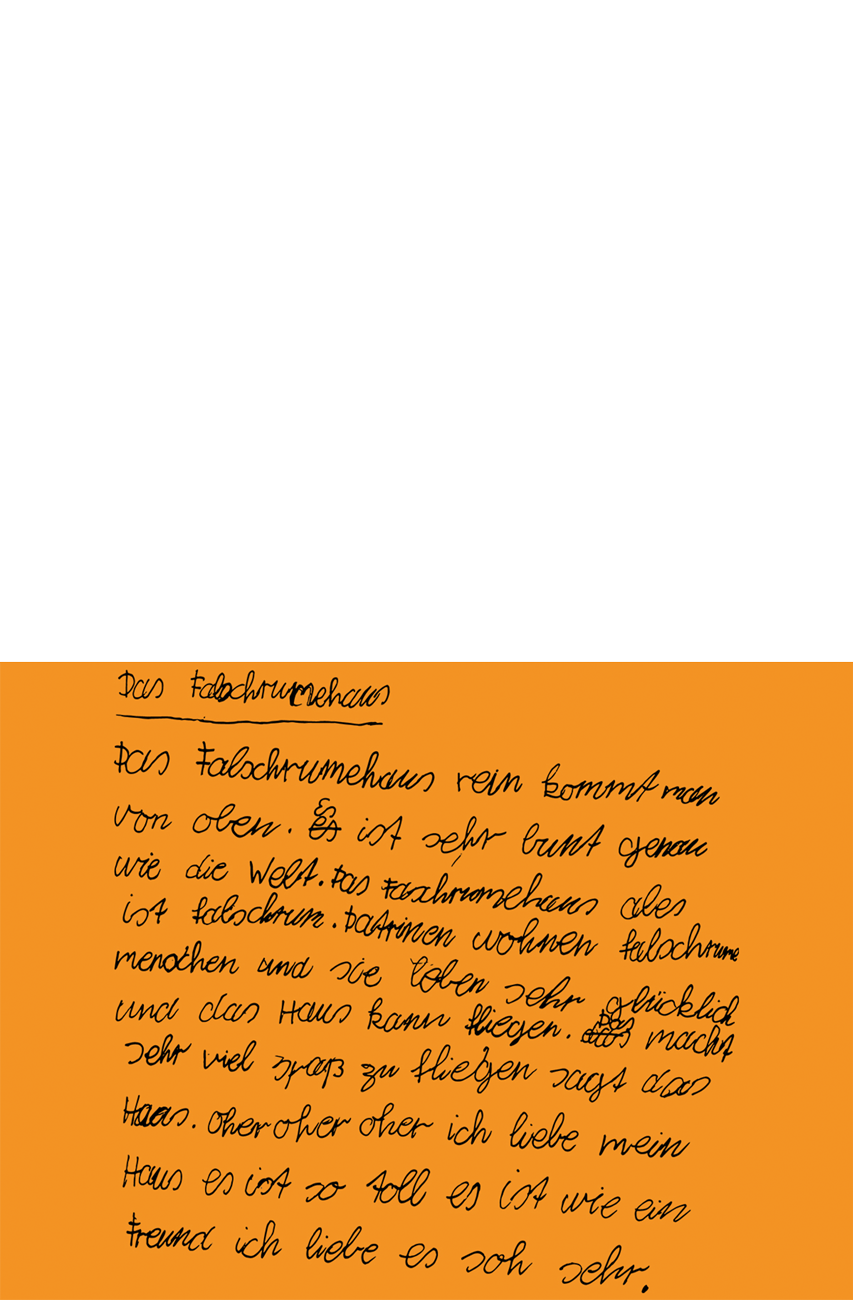 Das Falschrumehaus
Das Falschrumehaus rein kommt man
von oben. Es ist sehr bunt genau
wie die Welt. Das Faschrumehaus ales
ist falschrum. Datrinen wohnen falschrume
menschen und sie leben sehr glücklich
und das Haus kann fliegen. Das macht
sehr viel spaß zu fliegen sagt das
Haus. oher oher oher ich liebe mein
Haus es ist so toll es ist wie ein
Freund ich liebe es soh sehr.